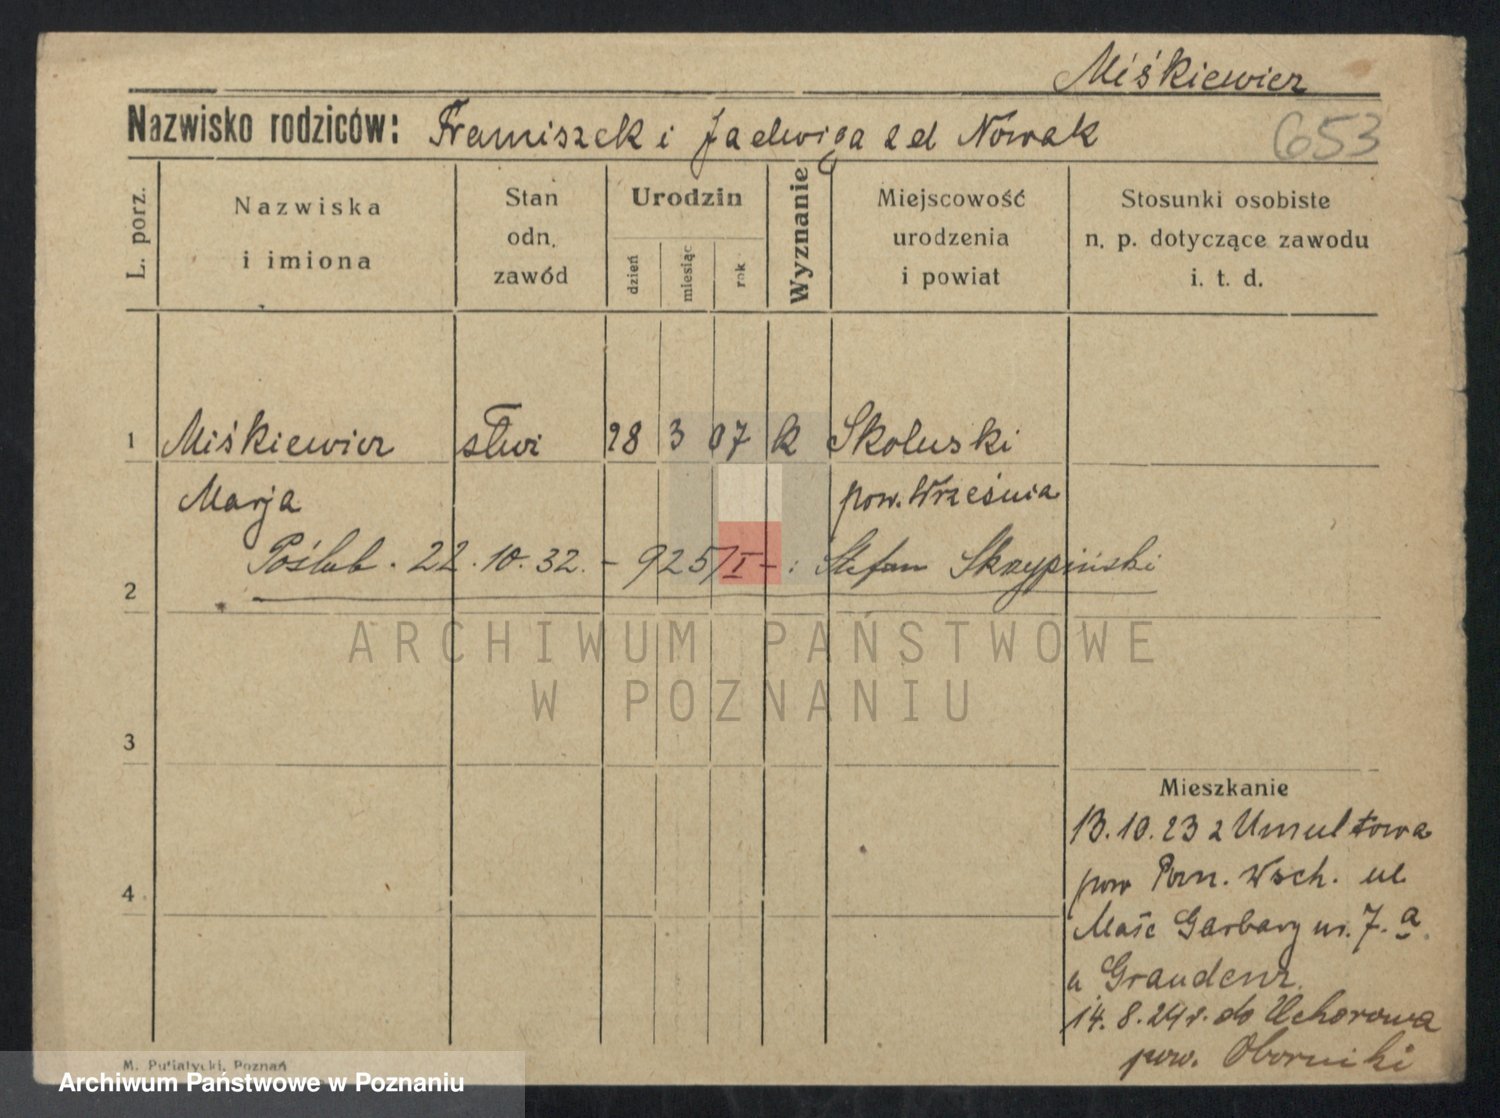 Miśkiewicz
Nazwisko rodziców: Franciszek i Jadwiga zd Nowak
653
L. porz.
Nazwiska
i imiona
Stan
odn.
zawód
Urodzin
dzień
miesiąc
rok
Wyznanie
Miejscowość
urodzenia
i powiat
Stosunki osobiste
n. p. dotyczące zawodu
i. t. d.
1 Miśkiewicz 28 3 07 k Skoluski
Marja pow. Września
2 Poślub. 22.10.32. - 925/I - : Stefan Skrzypiński
ARCHIWUM PAŃSTWOWE
W POZNANIU
3
4
Mieszkanie
13.10.23 z Umultowa
pow Pozn. Wsch. ul
Małe Garbary nr. 7. a.
u Graudenz.
14.8.29r. do Uchorowa
pow. Oborniki
M. Putiatycki, Poznań
Archiwum Państwowe w Poznaniu